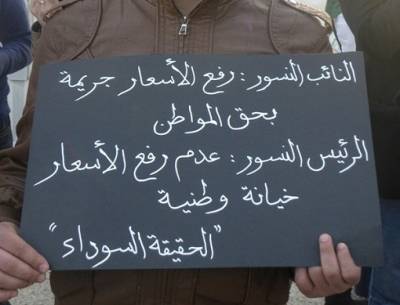 النائب النسور : رفع الأسعار جريمة
بحق المواطن
الرئيس النسور : عدم رفع الأسعار
خيانة وطنية
"الحقيقة السوداء"